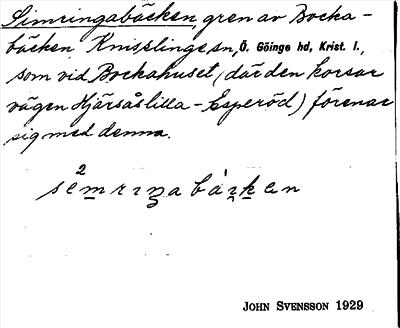 Simringabäcken, gren av Bocka-
bäcken Knisslinge sn, Ö. Göinge hd, Krist. l.,
som vid Bockahuset (där den korsar
vägen Hjärsåslilla - Esperöd) förenar
sig med denna.
2
JOHN SVENSSON 1929